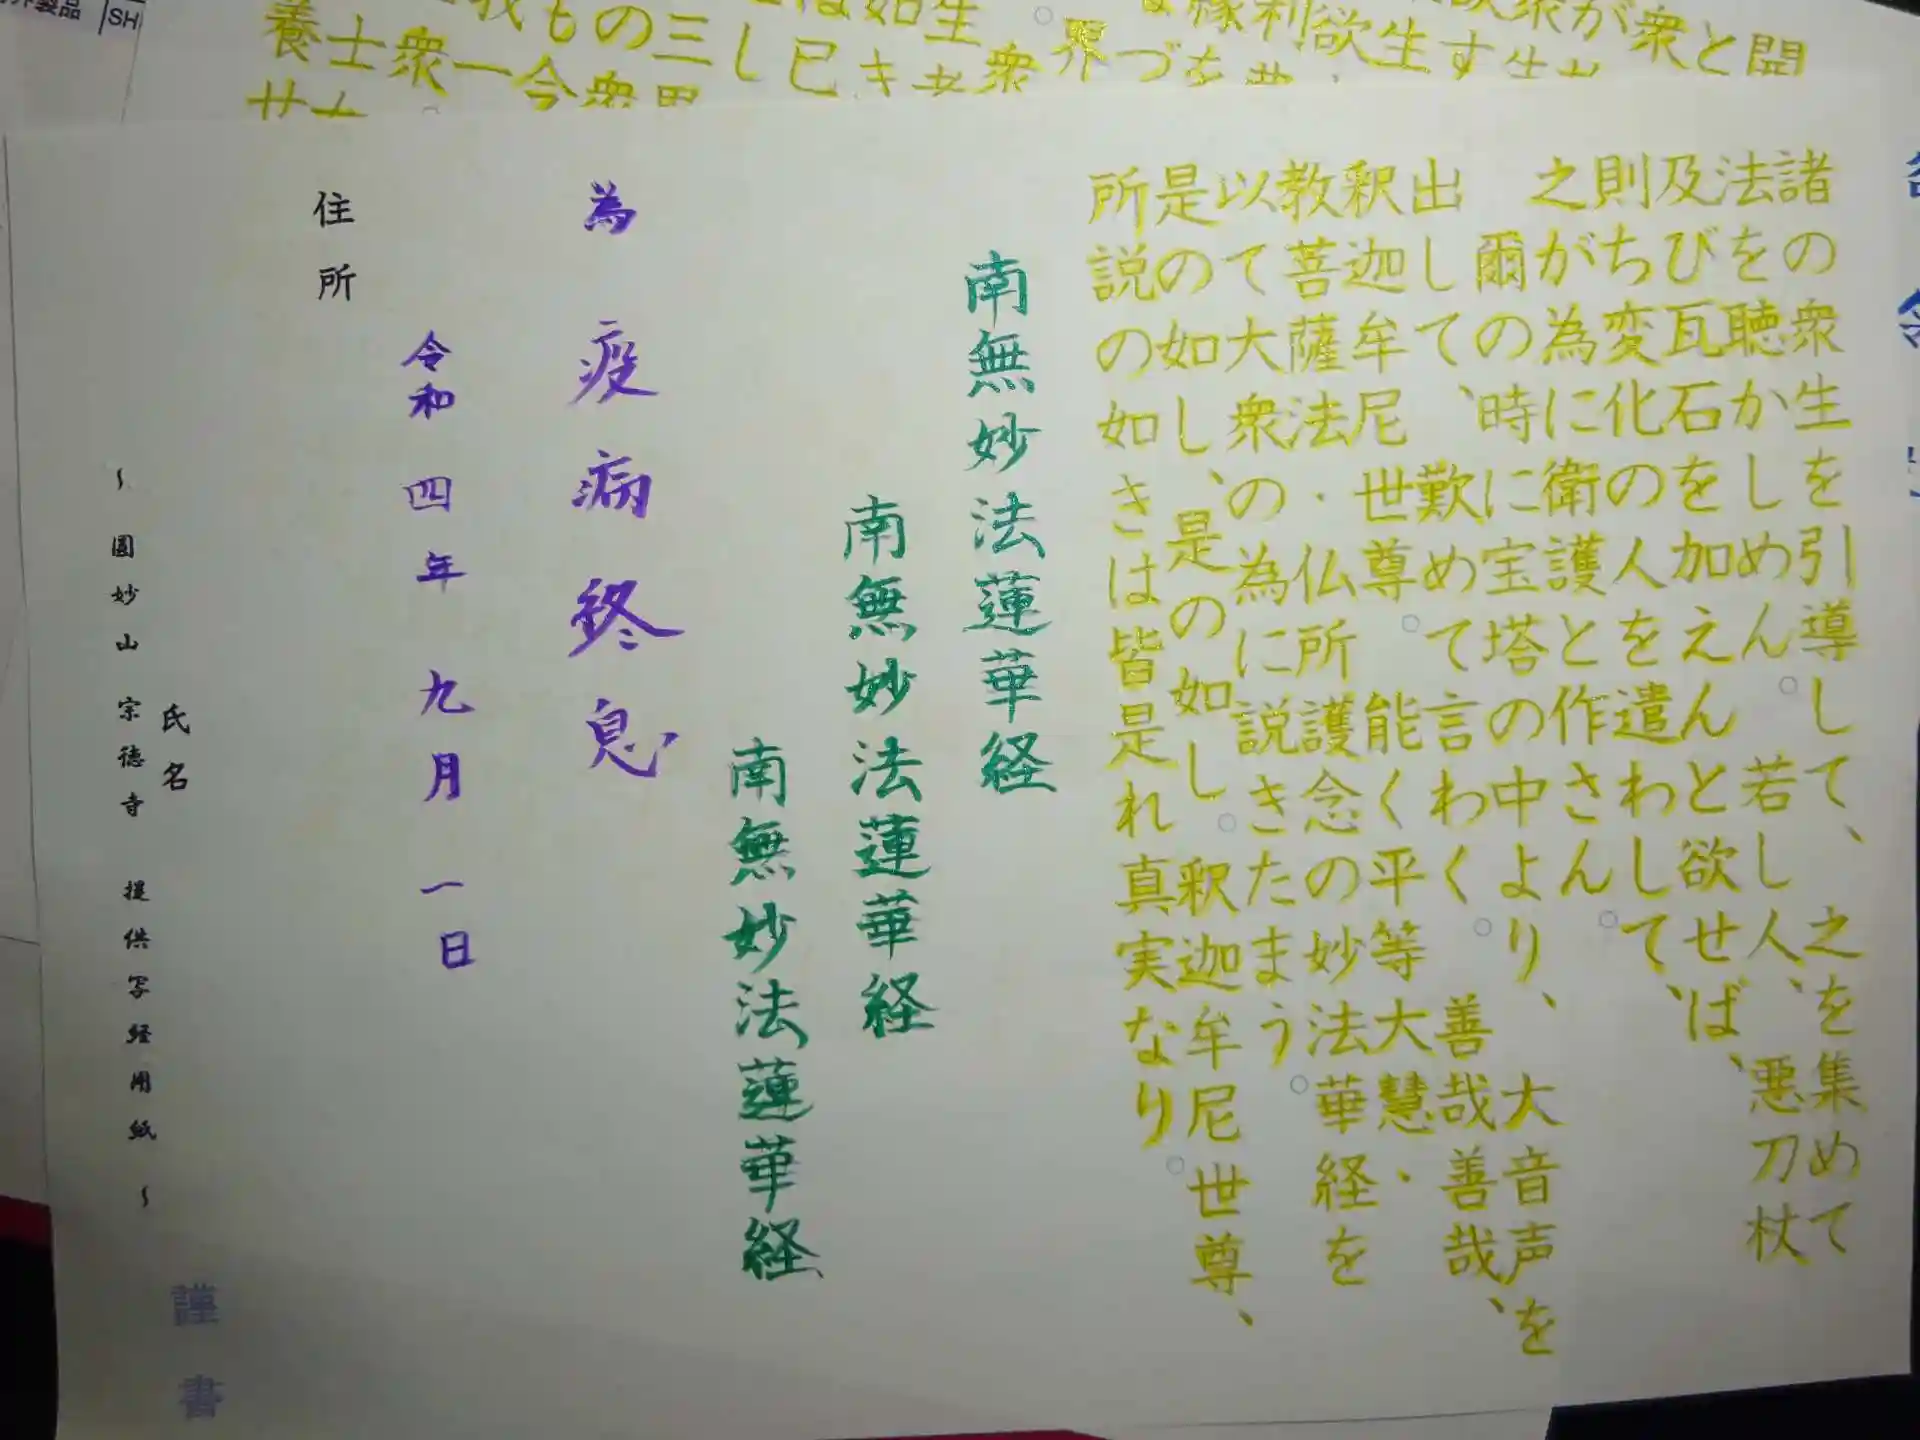 諸の衆生を引導して、之を集めて
法を聴かしめん。若し人、悪刀杖
及び瓦石を加えんと欲せば、
則ち変化の人を遣わして、
之が為に衛護と作さん。
爾の時に宝塔の中より、大音声を
出して、歎めて言わく。善哉善哉、
釈迦牟尼世尊。能く平等大慧・
教菩薩法・仏所護念の妙法華経を
以て大衆の為に説きたまう。
是の如し、是の如し。釈迦牟尼世尊、
所説の如きは皆是れ真実なり。
南無妙法蓮華経
南無妙法蓮華経
南無妙法蓮華経
為 疫病終息
令和四年 九月 一日
住所
氏名
~ 圓妙山 宗徳寺 提供写経用紙 ~
謹書
SH